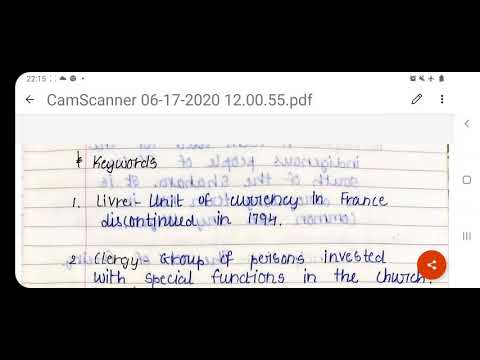 22:15
CamScanner 06-17-2020 12.00.55.pdf
* Keywords
1. Livre:- Unit of currency in France
discontinued in 1794.
2. Clergy Group of persons invested
with special functions in the church.